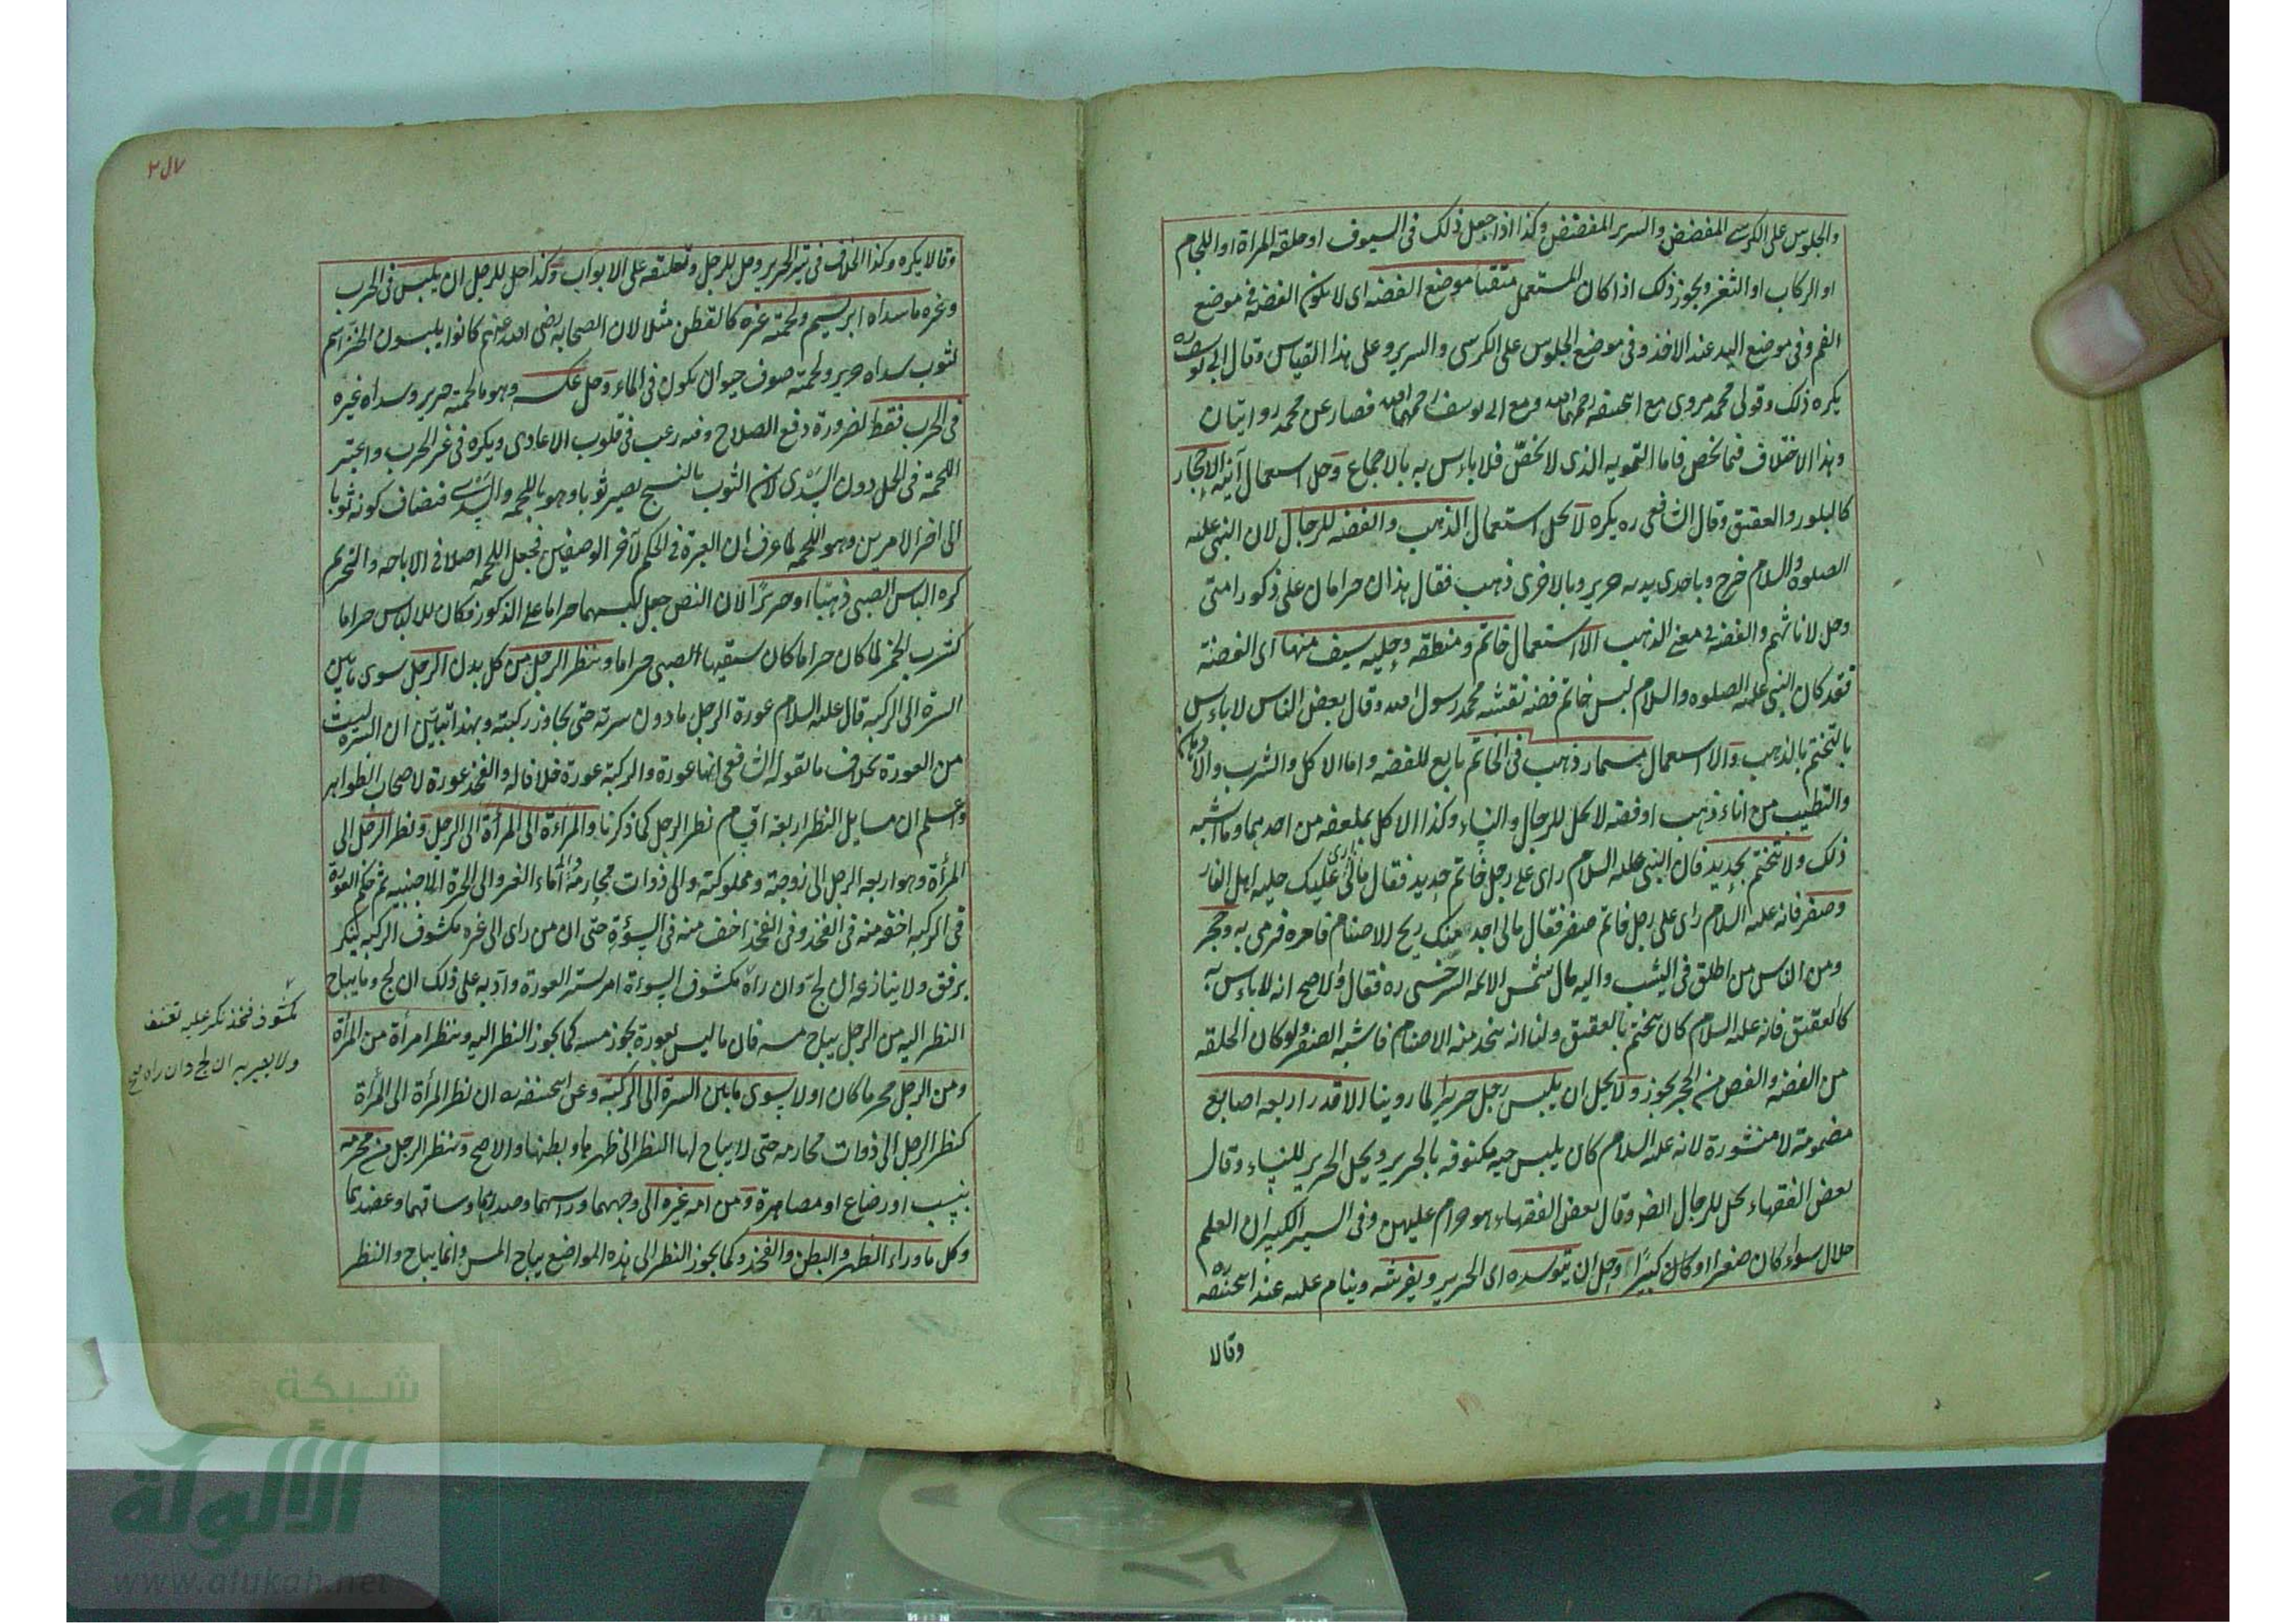 والجلوس على الكرسي المفضض والسرير المفضض وكذا اذا جعل ذلك فى السيوف او حلقة المراة او اللجام
او الركاب او الثغر ويجوز ذلك اذا كان المستعمل متقيا موضع الفضه اى لا يكون الفضه فى موضع
الفم وفى موضع اليد عند الاخذ وفى موضع الجلوس على الكرسى والسرير وعلى هذا القياس وقال ابى يوسف ره
يكره ذلك وقول محمد مروى مع ابيحنيفه رحمهما الله ومع ابى يوسف رحمهما الله فصار عن محمد روايتان
وهذا الاختلاف فيما يخلص فاما التمويه الذى لا يخلص فلا باءس به بالاجماع وحل استعمال آنية الاحجار
كالبلور والعقيق وقال الشافعى ره يكره لا يحل استعمال الذهب والفضه للرجال لان النبى عليه
الصلوه والسلام خرج وباحدى يديه حرير وبالاخرى ذهب فقال هذان حرامان على ذكور امتى
وحل لاناثهم والفضه فى معنى الذهب الا استعمال خاتم ومنطقه وحليه سيف منها اى الفضة
فقد كان النبى عليه الصلوه والسلام لبس خاتم فضه نقشه محمد رسول الله وقال بعض الناس لا باءس
بالتختم بالذهب والا استعمال مسمار ذهب فى الخاتم تابع للفضه واما الاكل والشرب والادهان
والتطيب من اناء ذهب او فضه لا يحل للرجال والنساء وكذا الاكل بملعقه من احدهما وما اشبه
ذلك ولا يتختم بحديد فان النبى عليه السلام راى على رجل خاتم حديد فقال مالى ارى عليك حليه اهل النار
وصفر فانه عليه السلام راى على رجل خاتم صفر فقال مالى اجد منك ريح الاصنام فامره فرمى به وحجر
ومن الناس من اطلق فى اليشب واليه مال شمس الائمه السرخسى ره فقال والاصح انه لا باءس به
كالعقيق فانه عليه السلام كان يتختم بالعقيق ولنا انه يتخذ منه الاصنام فاشبه الصفر ولو كان الحلقه
من الفضه والفص من الحجر يجوز ولا يحل ان يلبس رجل حريرا لما روينا الا قدر اربعه اصابع
مضمومة لا منشورة لانه عليه السلام كان يلبس جبه مكفوفه بالحرير ويحل الحرير للنساء وقال
بعض الفقهاء يحل للرجال ايضا وقال بعض الفقهاء هو حرام عليهن وفى السير الكبير ان العلم
حلال سواء كان صغيرا او كان كبيرا وحل ان يتوسده اى الحرير ويفرشه وينام عليه عند ابيحنيفه ره
وقالا
وقالا يكره وكذا الخلاف فى ستر الحرير وحل للرجل وتعليقه على الابواب وكذا حل للرجل ان يلبس فى الحرب
وغيره ما سداه ابريسم ولحمته غيره كالقطن مثلا لان الصحابه رضى الله عنهم كانوا يلبسون الخز اسم
لثوب سداه حرير ولحمته صوف حيوان يكون فى الماء وحل عكسه وهو ما لحمته حرير وسداه غيره
فى الحرب فقط لضرورة دفع السلاح وفيه رعب فى قلوب الاعادى ويكره فى غير الحرب واعتبر
اللحمة فى الحل دون السدى لان الثوب بالنسج يصير ثوبا وهو باللحمه والسدى فيضاف كونه ثوبا
الى اخر الامرين وهو اللحمه لما عرف ان العبرة فى الحكم لآخر الوصفين فجعل اللحمه اصلا فى الاباحه والتحريم
كره الباس الصبى ذهبا او حريرا لان النص جعل لبسهما حراما على الذكور فكان للالباس حراما
كشرب الخمر لما كان حراما كان سقيها الصبى حراما وينظر الرجل من كل بدن الرجل سوى ما بين
السرة الى الركبه قال عليه السلام عورة الرجل ما دون سرته حتى يجاوز ركبته وبهذا تبين ان السره ليست
من العورة بخلاف ما يقوله الشافعى انها عورة والركبه عورة خلافا له والفخذ عورة لاصحاب الظواهر
واعلم ان مسايل النظر اربعه اقسام نظر الرجل كما ذكرنا والمراءة الى المرأة الى الرجل ونظر الرجل الى
المرأة وهو اربعه الرجل الى زوجته ومملوكته والى ذوات محارمه والى اماء الغير والى الحرة الاجنبيه ثم حكم العورة
فى الركبه اخف منه فى الفخذ وفى الفخذ اخف منه فى السوءة حتى ان من راى الى غيره مكشوف الركبه ينكر
برفق ولا ينازعه ان لج وان رآه مكشوف السوءة امر بستر العورة وادبه على ذلك ان لج وما يباح
النظر اليه من الرجل يباح مسه فان ما ليس بعورة يجوز مسه كما يجوز النظر اليه وينظر امرأة من المرأة
ومن الرجل محرما كان اولا سوى ما بين السرة الى الركبة وعن ابيحنيفه ره ان نظر المرأة الى المرأة
كنظر الرجل الى ذوات محارمه حتى لا يباح لها النظر الى ظهرها وبطنها والاصح وينظر الرجل من محرمه
بنسب او رضاع او مصاهرة ومن امه غيره الى وجهها وراسها وصدرها وساقهما وعضدهما
وكل ما وراء الظهر والبطن والفخذ وكما يجوز النظر الى هذه المواضع يباح المس وانما يباح والنظر
مكشوف فخذ ينكر عليه بعنف
ولا يضربه ان لج وان راه صح
شبكة
الألوكة
www.alukah.net